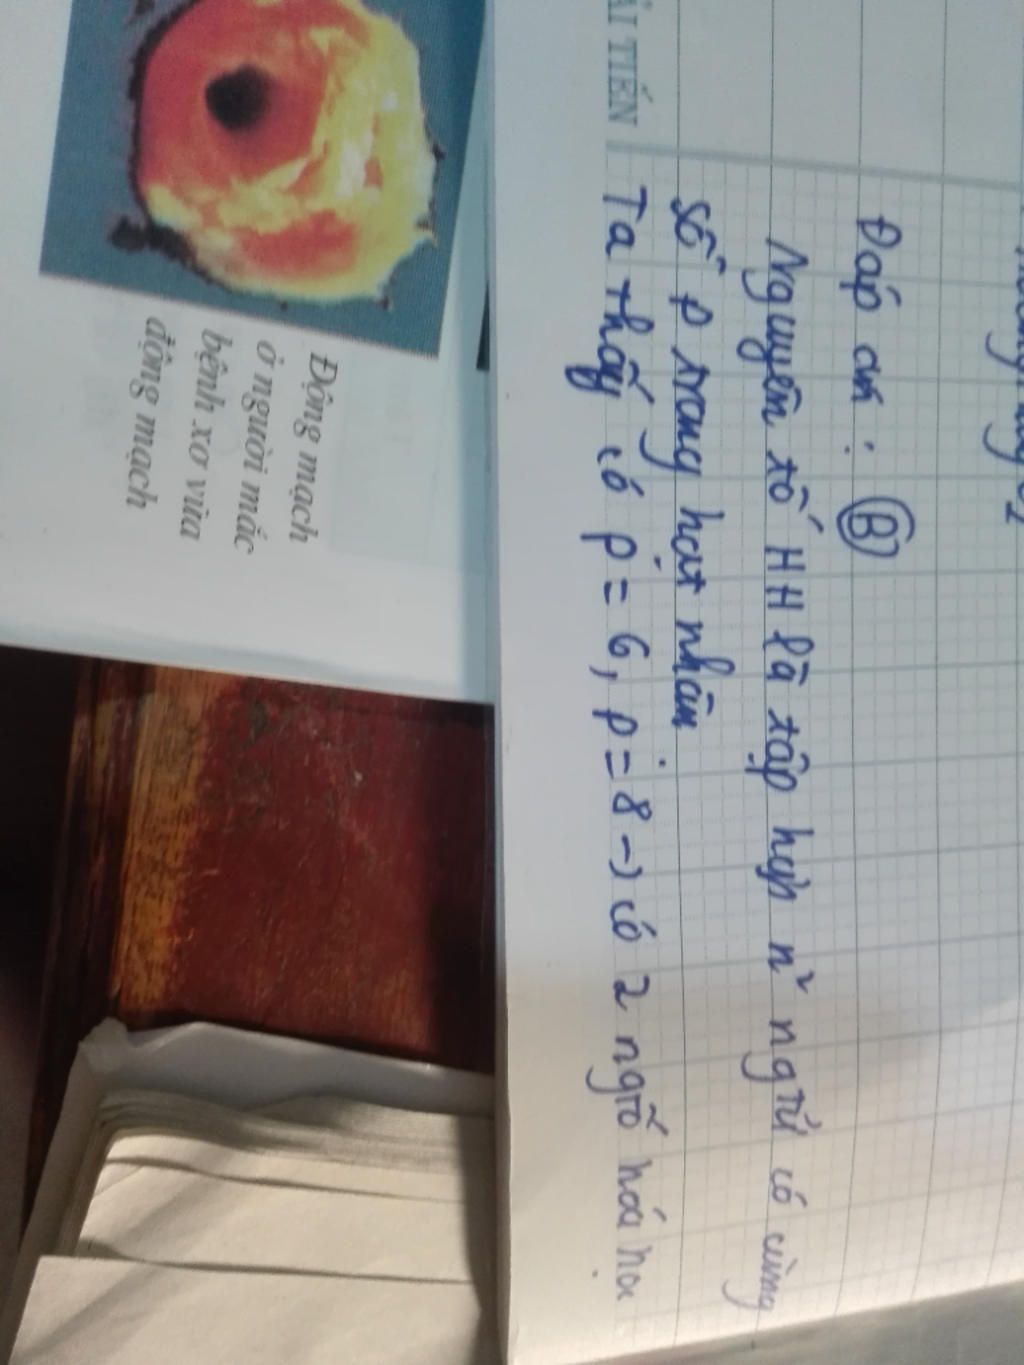 ẢI TIẾN
Đáp án : (B)
Nguyên tố HH là tập hợp n² ngtử có cùng
số p trong hạt nhân
Ta thấy có p = 6, p = 8 -> có 2 ngtố hóa học
Động mạch
ở người mắc
bệnh xơ vữa
động mạch